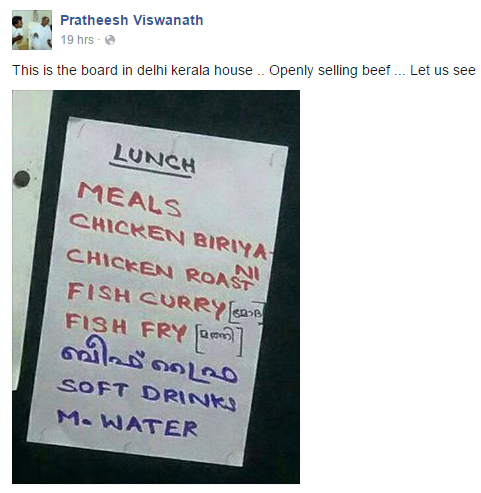 Pratheesh Viswanath
19 hrs ·
This is the board in delhi kerala house .. Openly selling beef ... Let us see
LUNCH
MEALS
CHICKEN BIRIYA-
NI
CHICKEN ROAST
FISH CURRY
FISH FRY [മത്തി]
ബീഫ് ഫ്രൈ
SOFT DRINKS
M. WATER